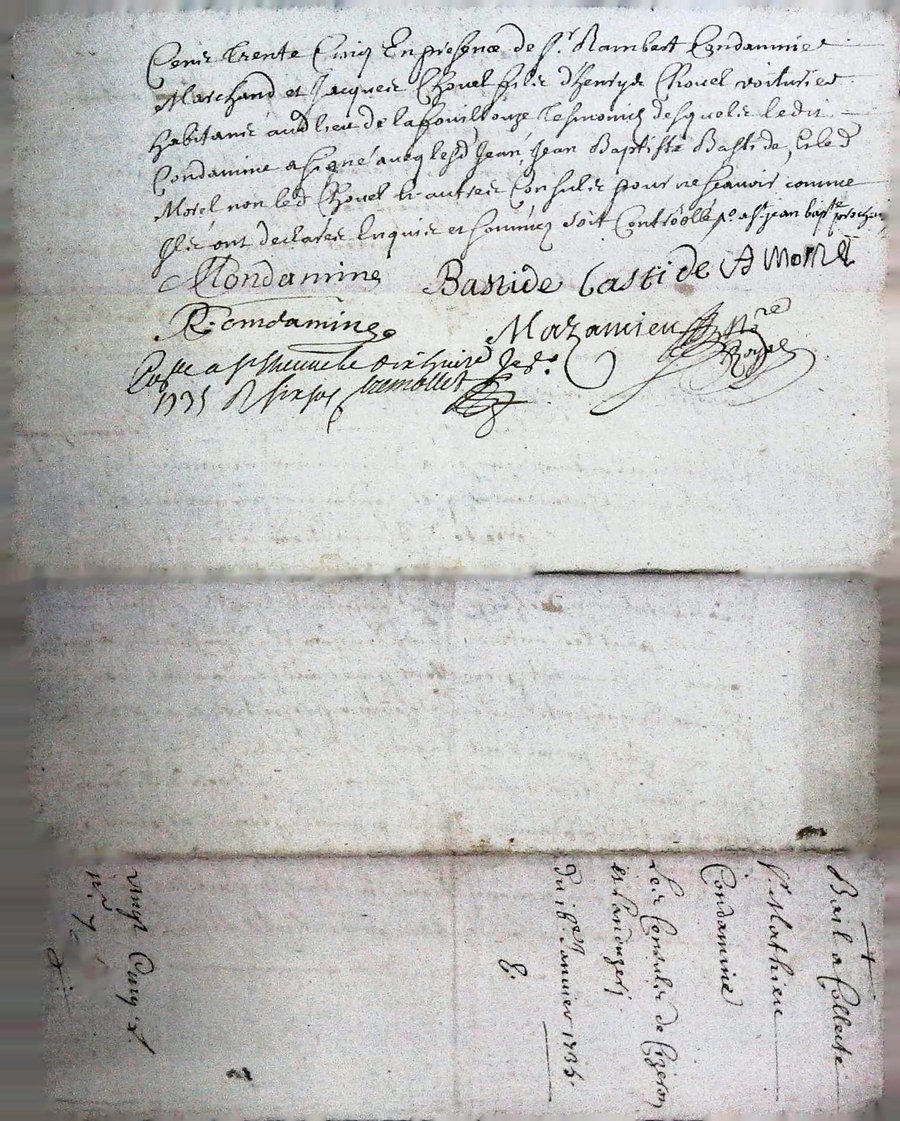 Cens trente Cinq En presence de Sr. Rambert Condamine
Marchand et Jacques Chovel fils d'henrys Chovel voiturier
habitans audt lieu de lafouillouze Tesmoins desquels ledit
Condamine a signé avecq lesd Jean, Jean Baptiste Bastide, et led
Morel non led Chovel et autres Consuls pour ne scavoir comme
Ils ont declarés Enquis et sommés soit Controollé po. a st jean bapte prochain
MCondamine Bastide bastide A Morel
R. Comdamine Mazamieu Nre Royal
a st Etienne le dix huit Jer.
1735 R six sols
Bail a Collecte
Sr Mathieu
Condamine
Les Consuls de Cizeron
et Landuzet
du 16e. Janvier 1735.
vingt Cinq